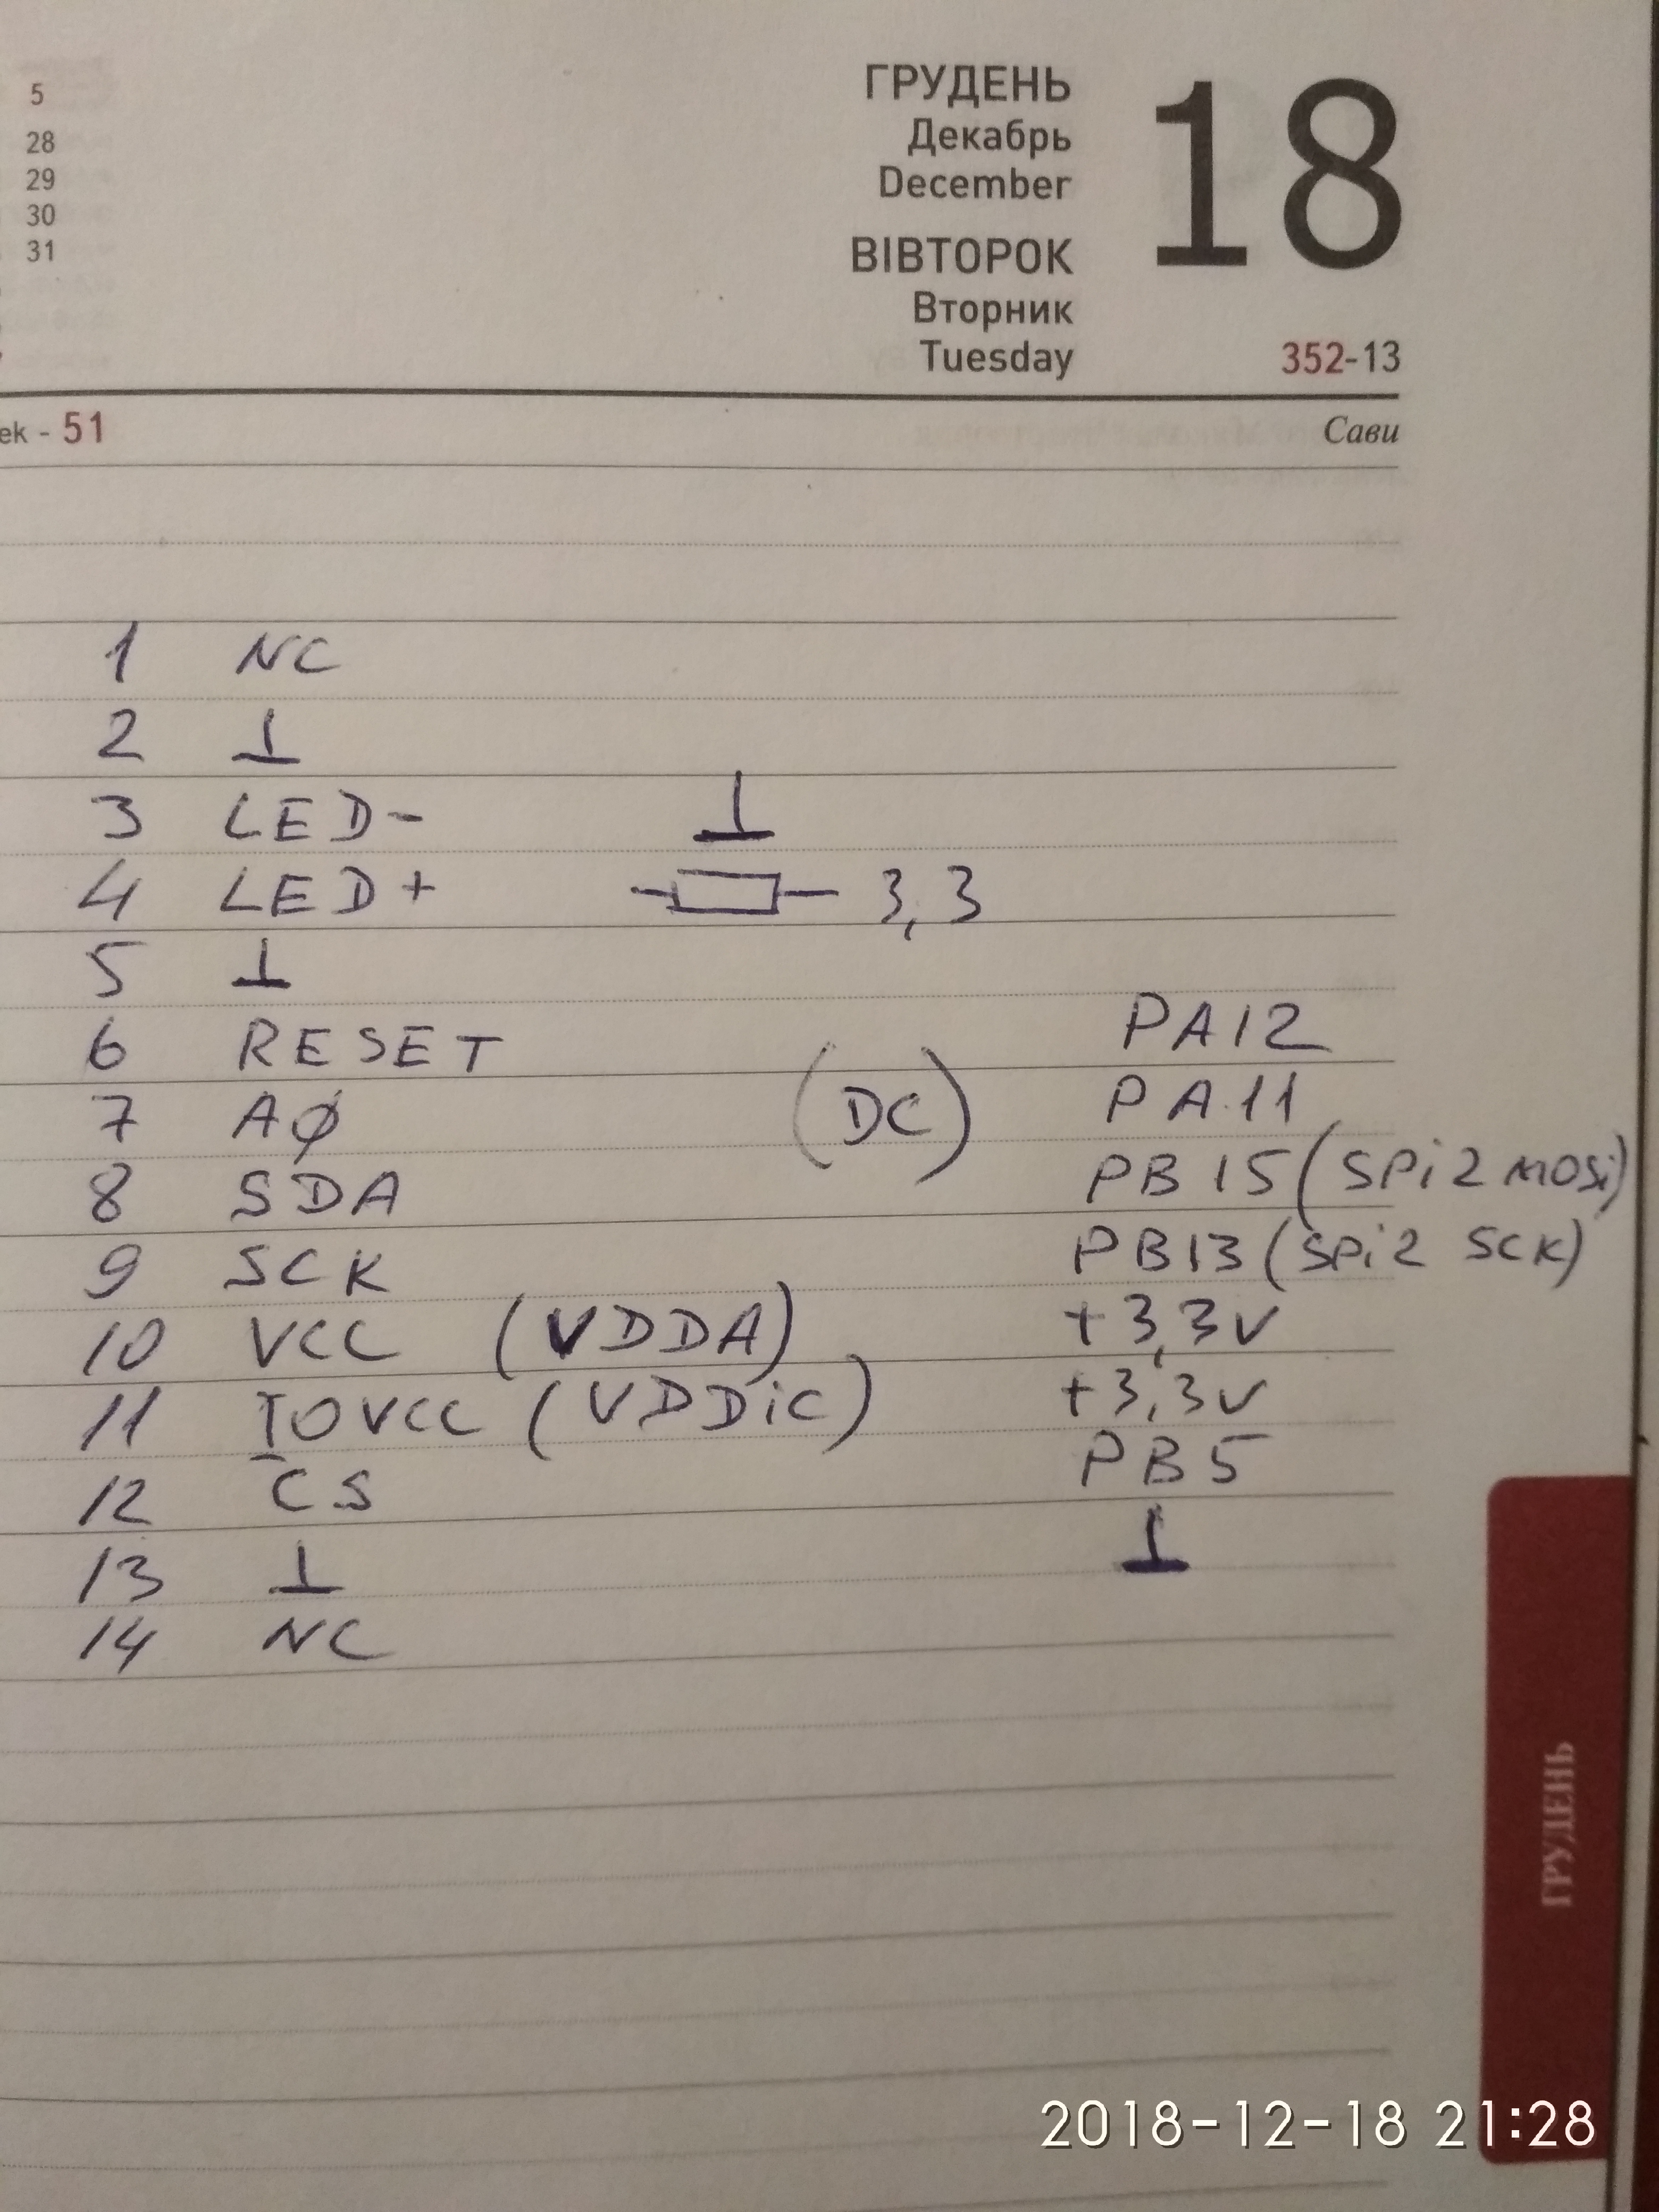 5
28
29
30
31
ГРУДЕНЬ
Декабрь
December
18
ВІВТОРОК
Вторник
Tuesday
352-13
ek - 51
Сави
1 NC
2 ⊥
3 LED- ⊥
4 LED+ 3,3
5 ⊥
6 RESET PA12
7 AØ (DC) PA11
8 SDA PB15 (SPi2 MOSi)
9 SCK PB13 (SPi2 SCK)
10 VCC (VDDA) +3,3V
11 IOVCC (VDDiC) +3,3V
12 CS PB5
13 ⊥ ⊥
14 NC
ГРУДЕНЬ
2018-12-18 21:28